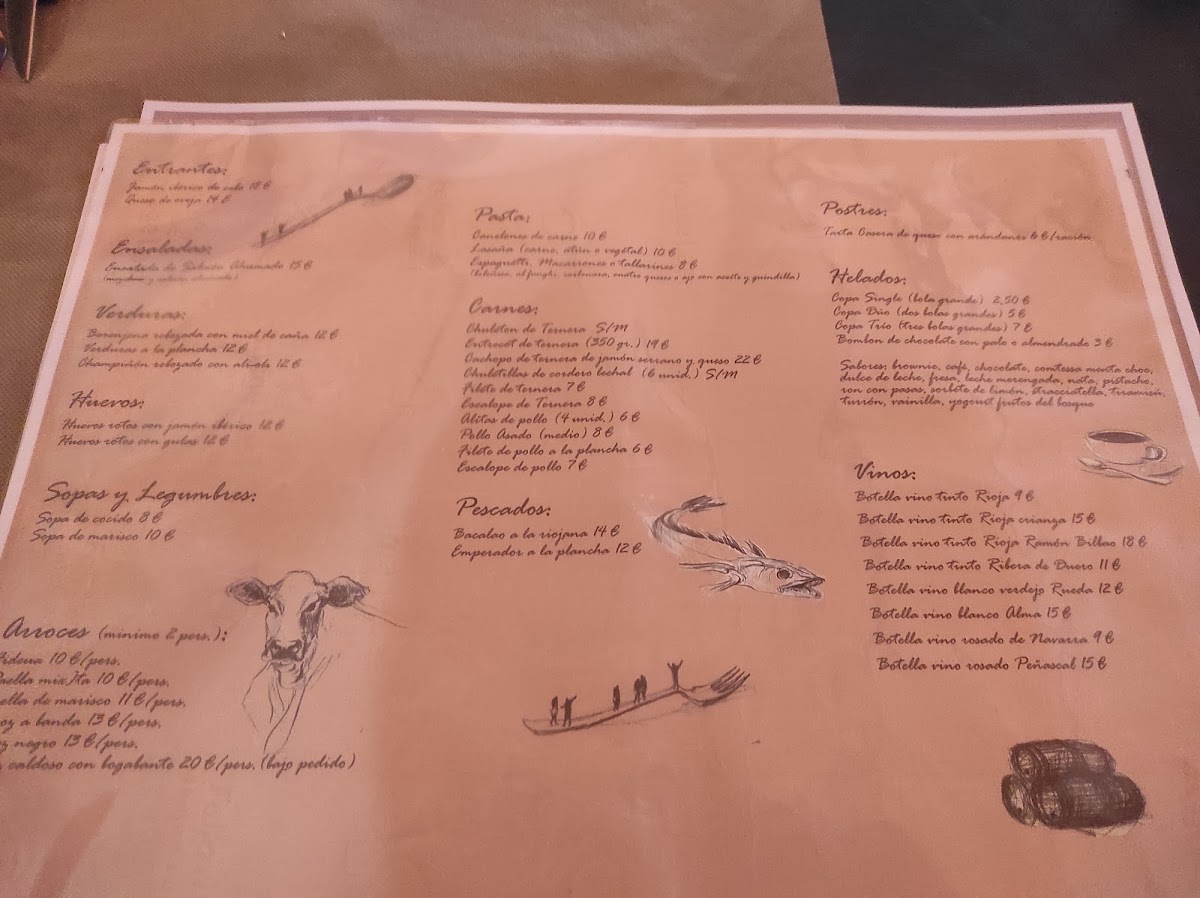 Entrantes:
Jamón ibérico de cebo 18 €
Queso de oveja 14 €
Ensaladas:
Ensalada de Ahumado 15 €
Verduras:
Berenjena rebozada con miel de caña 12 €
Verduras a la plancha 12 €
Champiñón rebozado con alioli 12 €
Huevos:
Huevos rotos con jamón ibérico 12 €
Huevos rotos con gulas 12 €
Sopas y Legumbres:
Sopa de cocido 8 €
Sopa de marisco 10 €
Arroces (mínimo 2 pers.):
Fideua 10 €/pers.
Paella mixta 10 €/pers.
ella de marisco 11 €/pers.
oz a banda 13 €/pers.
oz negro 13 €/pers.
caldoso con bogabante 20 €/pers. (bajo pedido)
Pasta:
Canelones de carne 10 €
Lasaña (carne, atún o vegetal) 10 €
Espaguetti, Macarrones o tallarines 8 €
(boloñesa, al funghi, carbonara, cuatro quesos o ajo con aceite y guindilla)
Carnes:
Chuleton de Ternera S/M
Entrecot de ternera (350 gr.) 19 €
Cachopo de ternera de jamón serrano y queso 22 €
Chuletillas de cordero lechal (6 unid.) S/M
Filete de ternera 7 €
Escalope de Ternera 8 €
Alitas de pollo (4 unid.) 6 €
Pollo Asado (medio) 8 €
Filete de pollo a la plancha 6 €
Escalope de pollo 7 €
Pescados:
Bacalao a la riojana 14 €
Emperador a la plancha 12 €
Postres:
Tarta Casera de queso con arándanos 6 €/ración
Helados:
Copa Single (bola grande) 2,50 €
Copa Dúo (dos bolas grandes) 5 €
Copa Trío (tres bolas grandes) 7 €
Bombon de chocolate con palo o almendrado 3 €
Sabores: brownie, café, chocolate, comtessa menta choc,
dulce de leche, fresa, leche merengada, nata, pistacho,
ron con pasas, sorbete de limón, stracciatella, tiramisú,
turrón, vainilla, yogourt frutos del bosque
Vinos:
Botella vino tinto Rioja 9 €
Botella vino tinto Rioja crianza 15 €
Botella vino tinto Rioja Ramón Bilbao 18 €
Botella vino tinto Ribera de Duero 11 €
Botella vino blanco verdejo Rueda 12 €
Botella vino blanco Alma 15 €
Botella vino rosado de Navarra 9 €
Botella vino rosado Peñascal 15 €